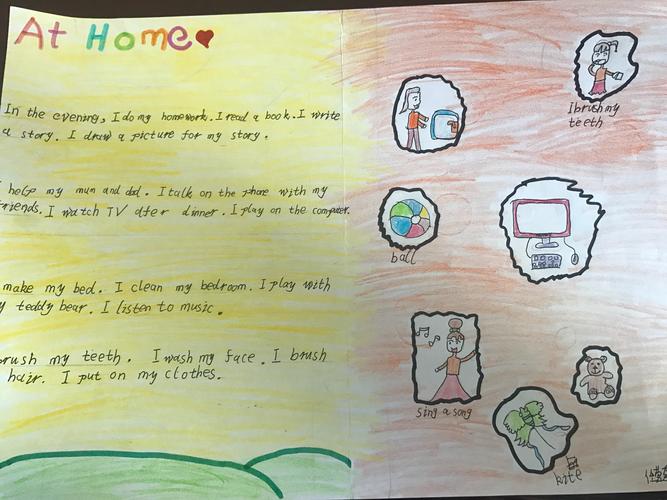 At Home
In the evening, I do my homework. I read a book. I write
a story. I draw a picture for my story.
help my mum and dad. I talk on the phone with my
friends. I watch TV after dinner. I play on the computer.
make my bed. I clean my bedroom. I play with
y teddy bear. I listen to music.
brush my teeth. I wash my face. I brush
hair. I put on my clothes.
I brush my
teeth
ball
sing a song
kite